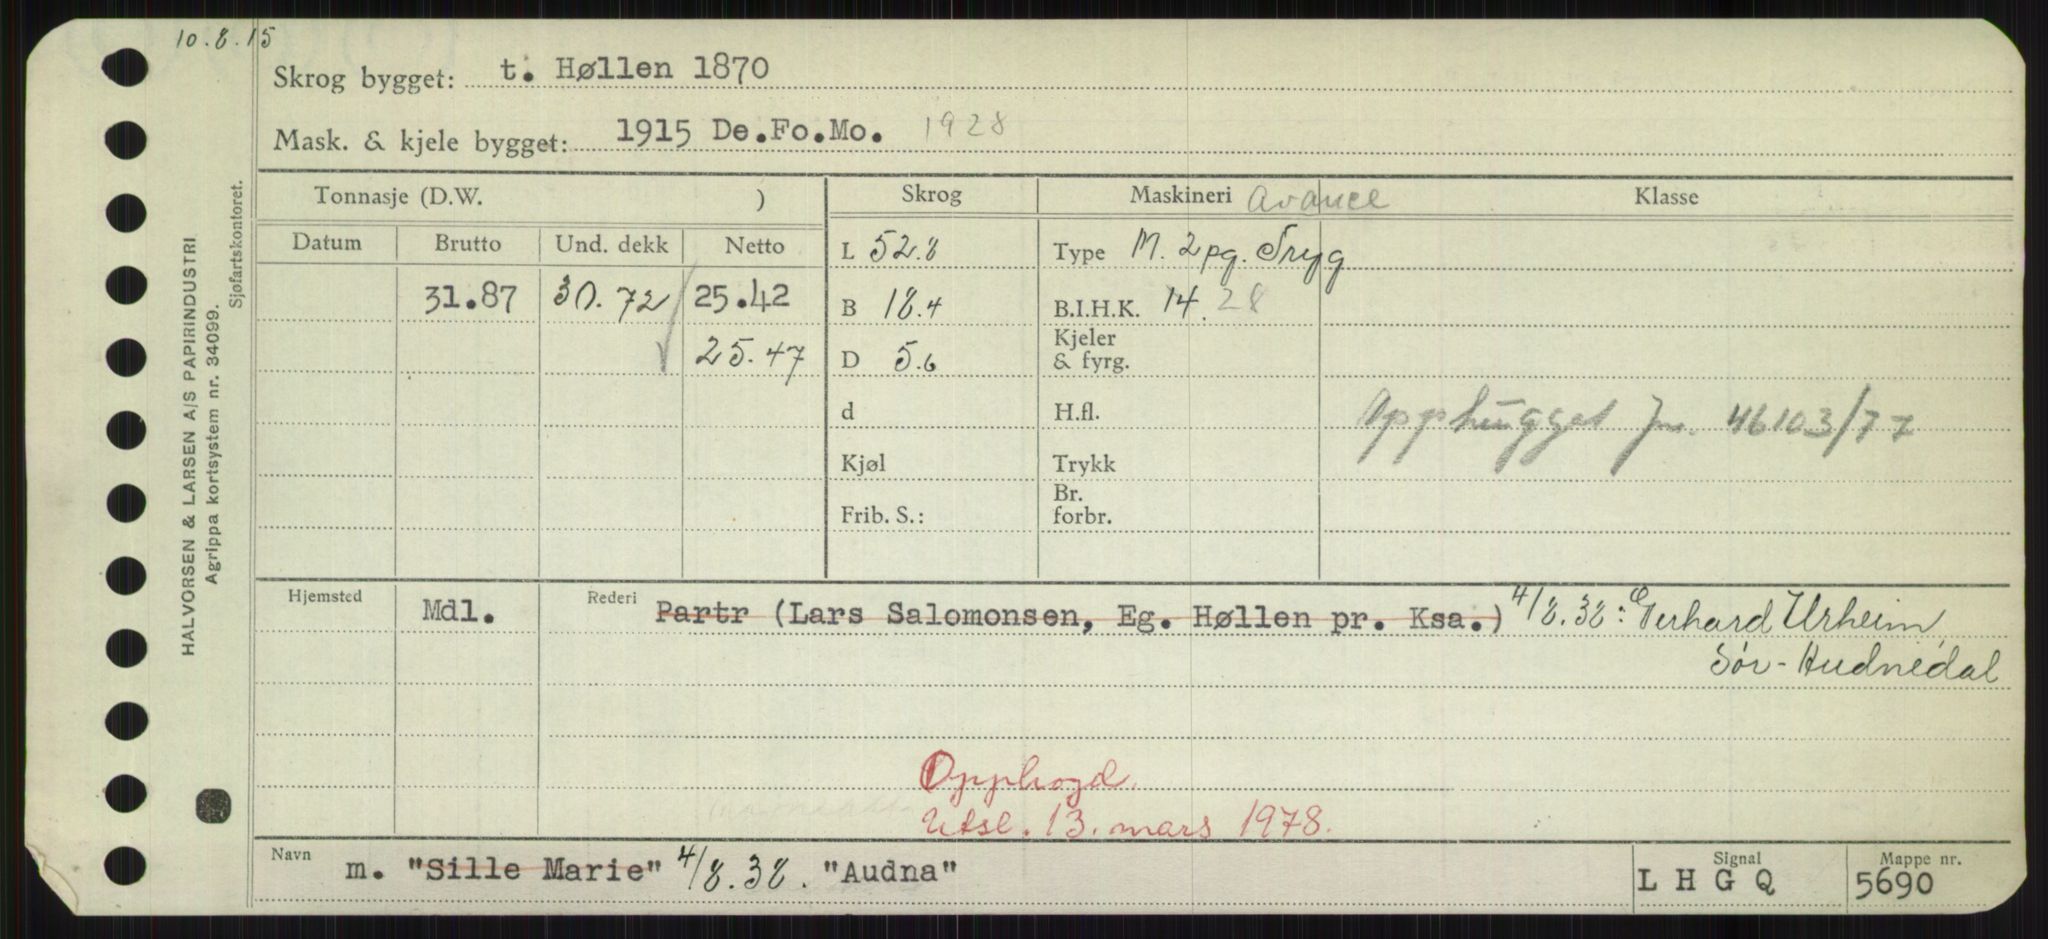 10.8.15
Skrog bygget: t. Høllen 1870
Mask. & kjele bygget: 1915 De.Fo.Mo. 1928
HALVORSEN & LARSEN A/S PAPIRINDUSTRI
Agrippa kortsystem nr. 34099.
Sjøfartskontoret.
Tonnasje (D.W. ) Skrog Maskineri Avance Klasse
Datum Brutto Und. dekk Netto L 52.8 Type M. 2 pg. Tryg
31.87 30.72 25.42 B 18.4 B.I.H.K. 14. 28
25.47 D 5.6 Kjeler & fyrg.
d H.fl. Opphugget jnr. 46103/77
Kjøl Trykk
Frib. S.: Br. forbr.
Hjemsted Mdl. Rederi Partr (Lars Salomonsen, Eg. Høllen pr. Ksa.) 4/8.38: Gerhard Urheim,
Sør-Audnedal
Opphogd.
Utsl. 13. mars 1978.
Navn m. "Sille Marie" 4/8.38. "Audna" Signal L H G Q Mappe nr. 5690